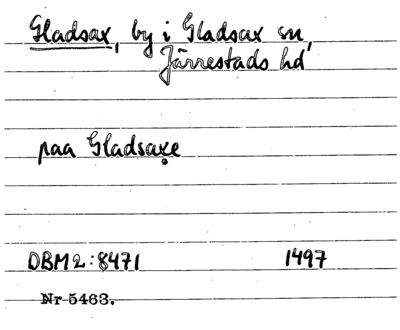 Gladsax, by i Gladsax sn,
Järrestads hd
paa Gladsaxe
DBM2:8471 1497
Nr 5463.